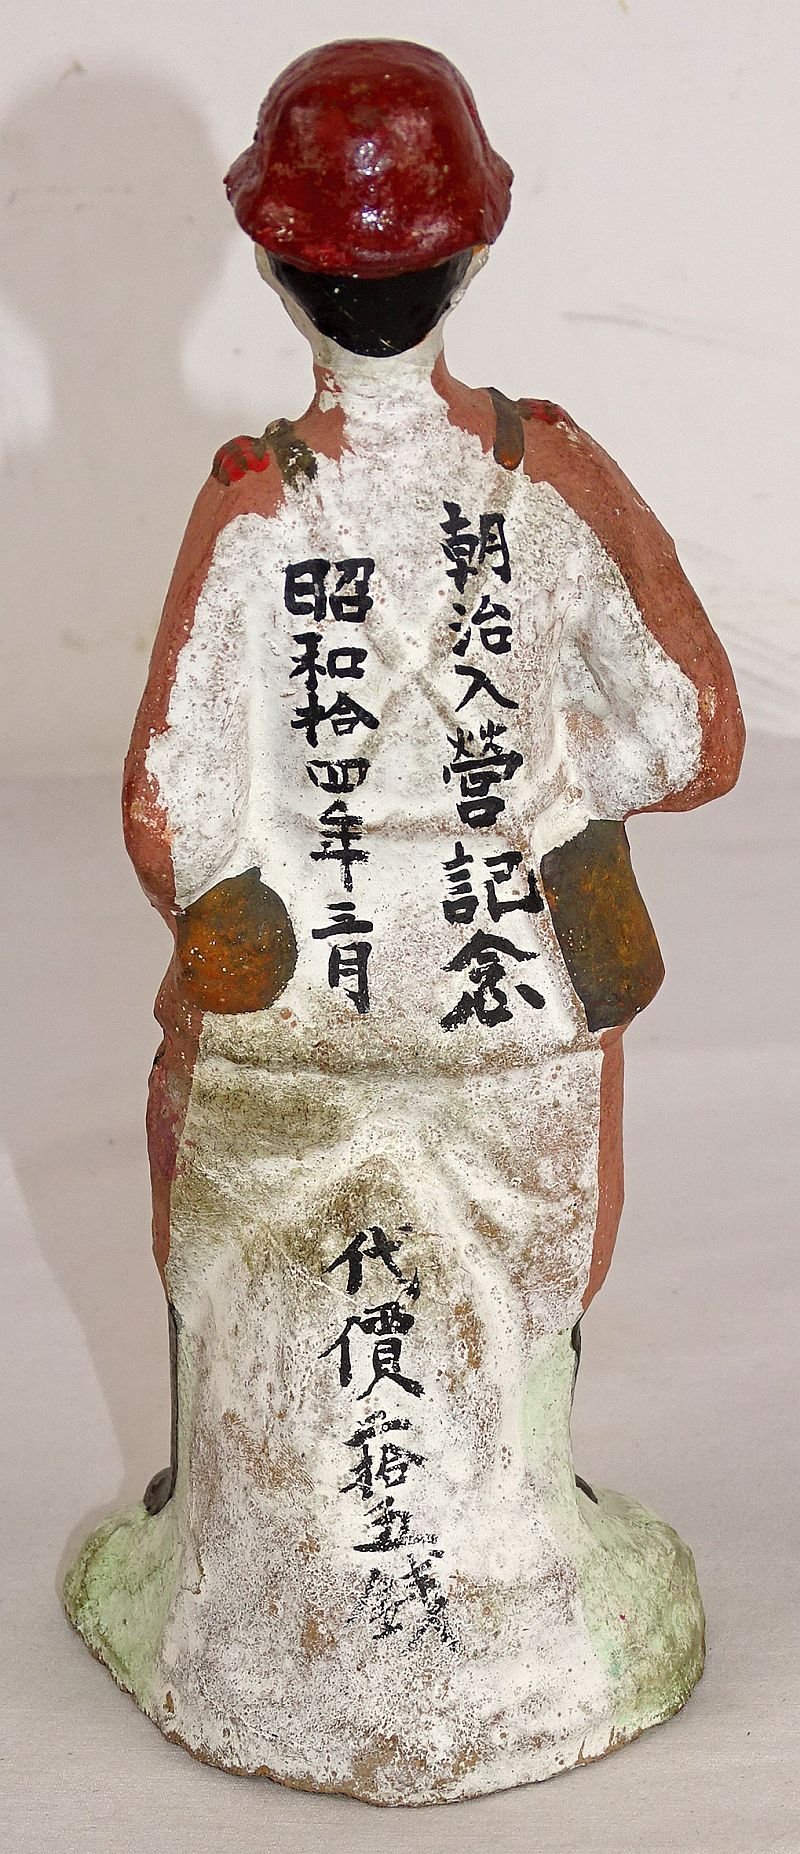 朝治入營記念
昭和拾四年三月
代價二拾五錢